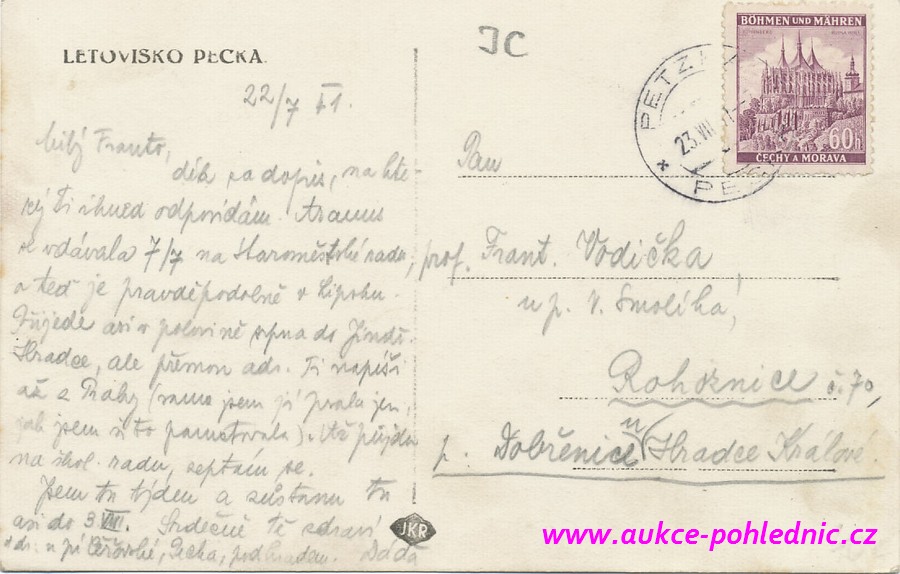 LETOVISKO PECKA.
22/7 41.
Milý Franto,
dík za dopis, na kte-
rý Ti ihned odpovídám.
se vdávala 7/7 na Staroměstské radn.,
a teď je pravděpodobně v Lipsku.
Přijede asi v polovině srpna do Jindř.
Hradce, ale přesnou adr. Ti napíši
až z Prahy (sama jsem jí psala jen,
jak jsem si to pamatovala). Až půjdu
na škol. radu, zeptám se.
Jsem tu týden a zůstanu tu
asi do 3. VIII. Srdečně tě zdraví
Pecka, pod hradem. Dáda
JC
BÖHMEN UND MÄHREN
60h
ČECHY A MORAVA
PETZKA
23.VII.41
Pan
prof. Frant. Vodička
u p. V. Smolíka,
Rohoznice č. 70,
p. Dobřenice u Hradce Králové.
JKR
www.aukce-pohlednic.cz